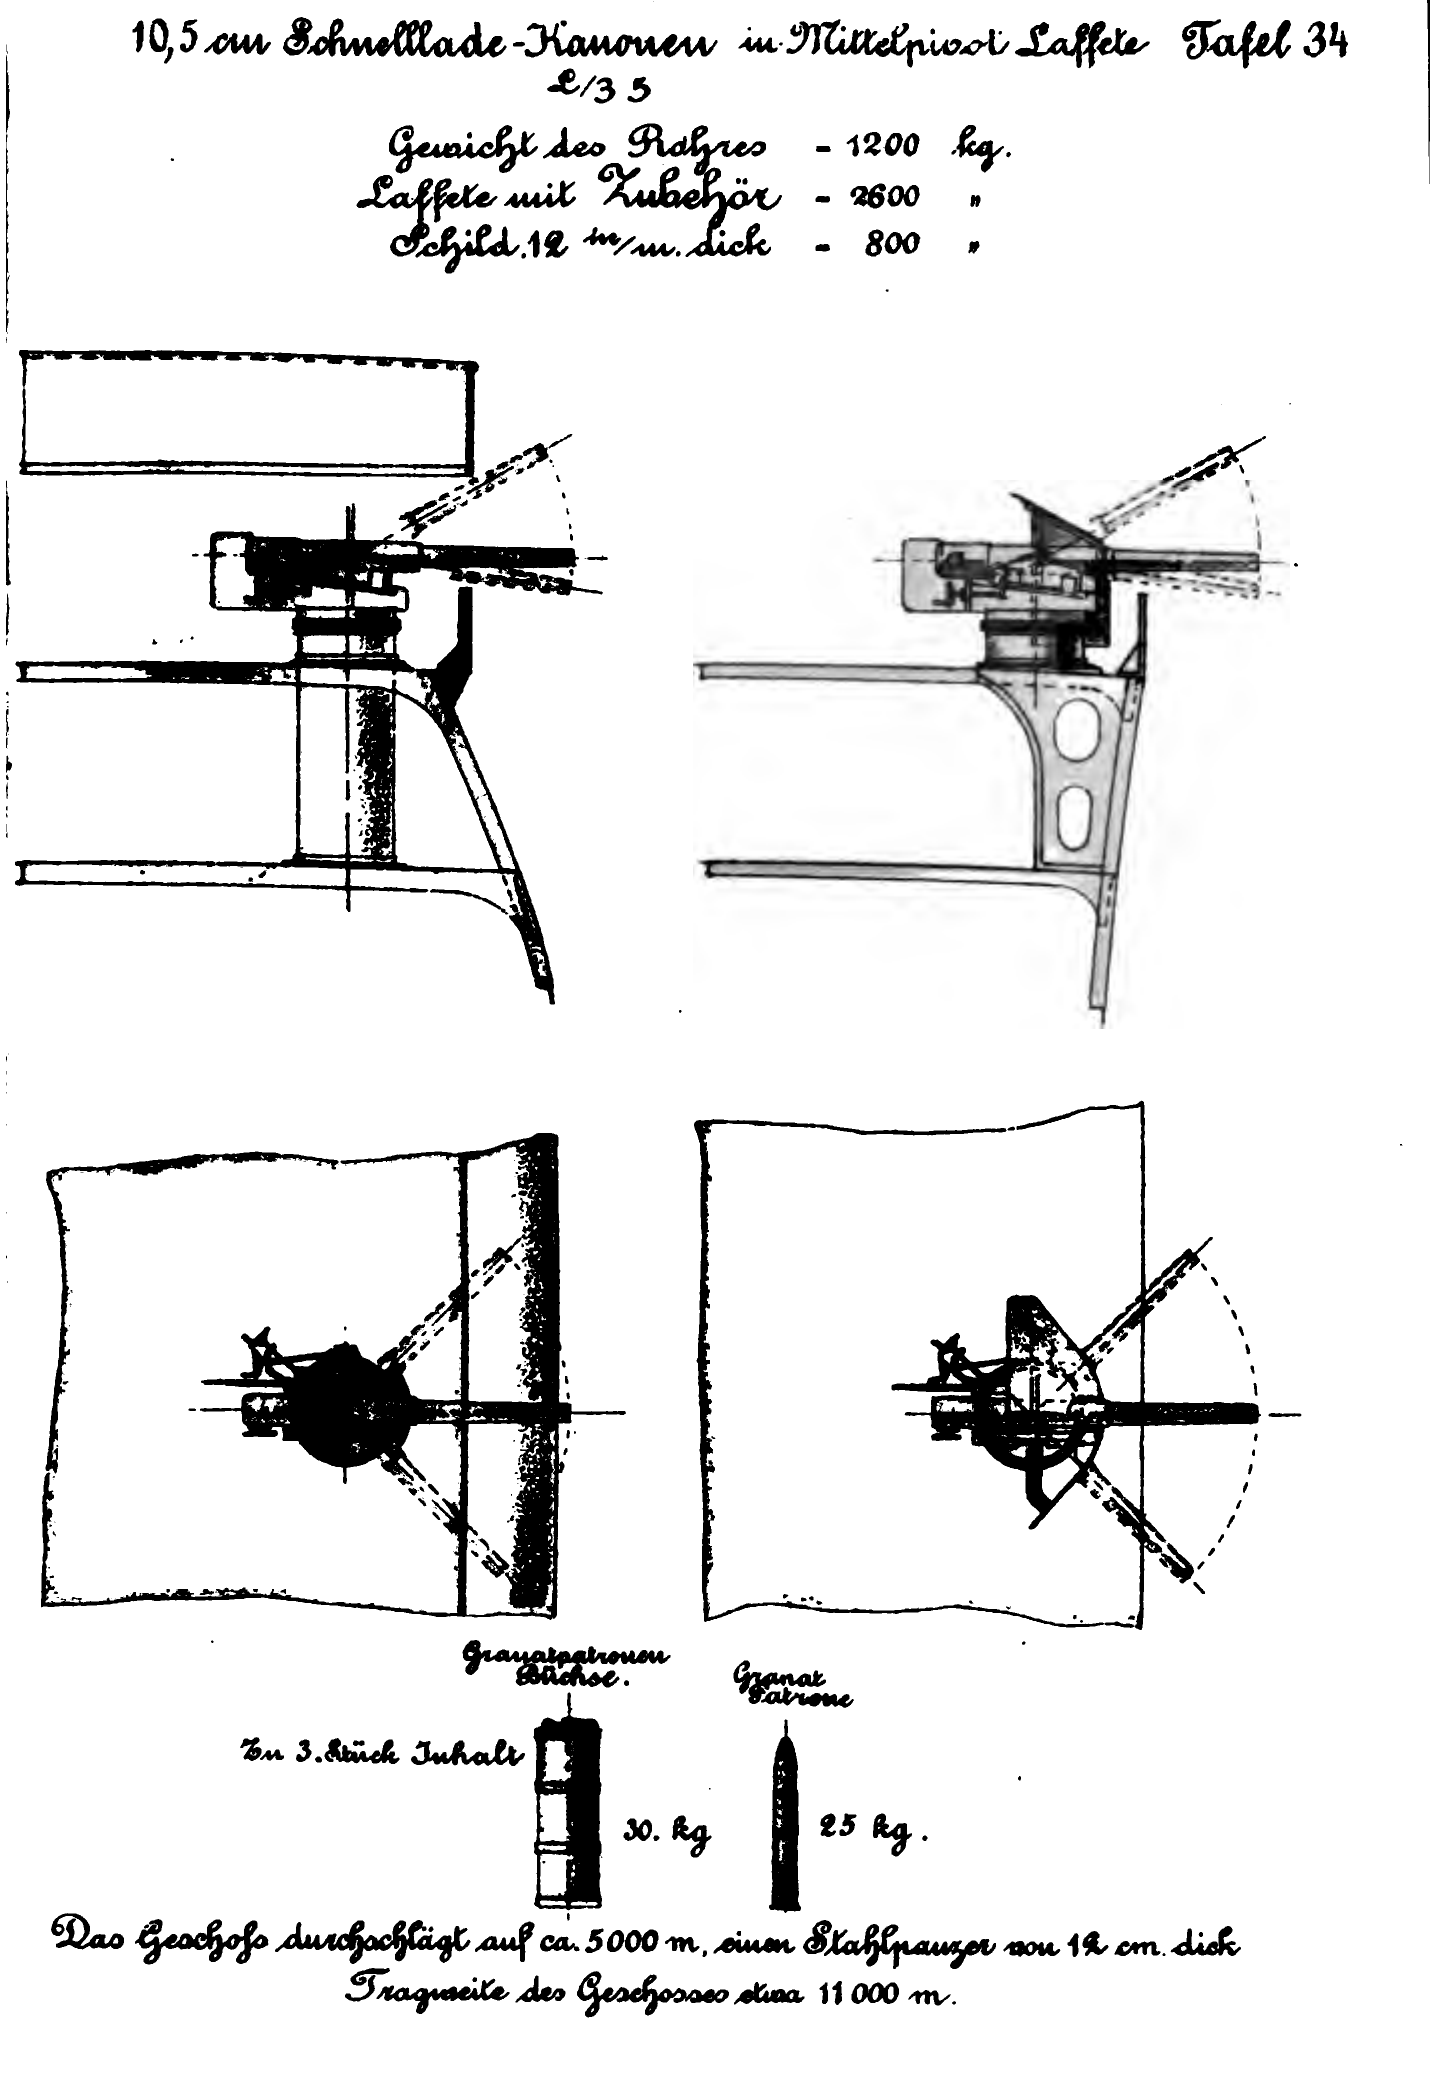 10,5 cm Schnelllade-Kanonen in Mittelpivot Laffete Tafel 34
L/35
Gewicht des Rohres - 1200 kg.
Laffete mit Zubehör - 2600 "
Schild. 12 m/m. dick - 800 "
Granatpatronen
Büchse.
Granat
Patrone
Zu 3. Stück Inhalt
30. kg
25 kg.
Das Geschofs durchschlägt auf ca. 5000 m, einen Stahlpanzer von 12 cm. dick
Tragweite des Geschosses etwa 11000 m.